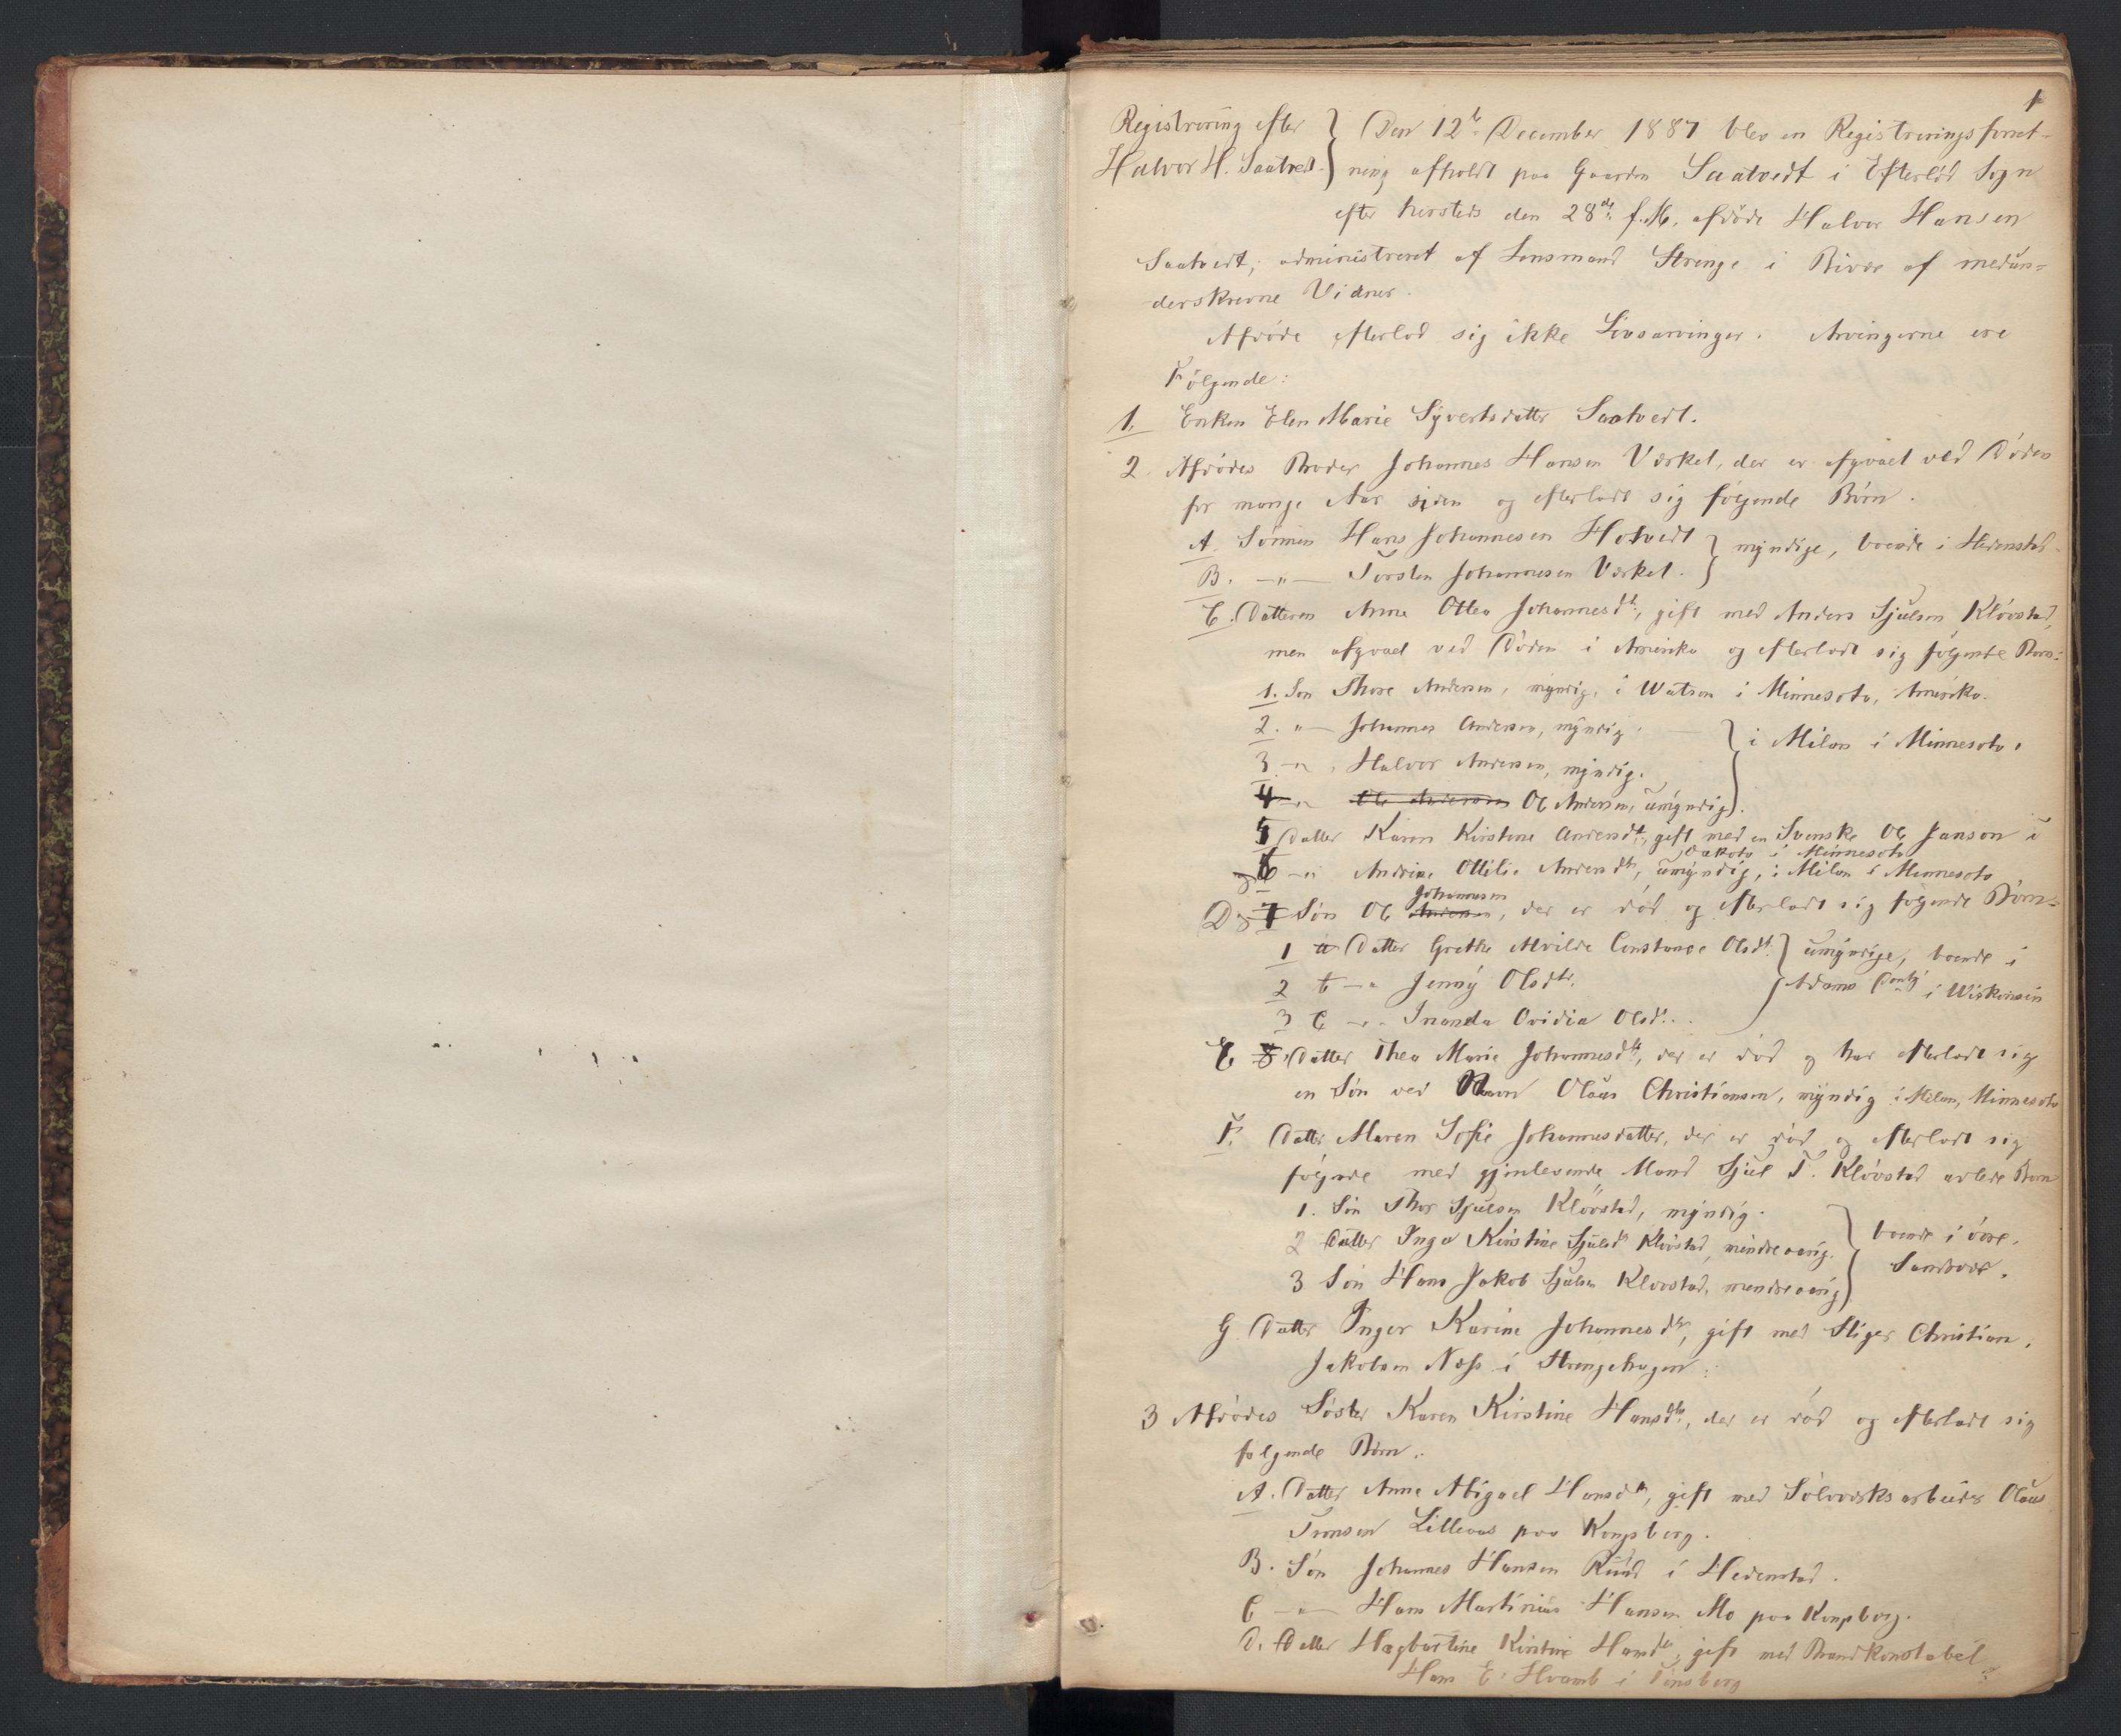 1
Registrering efter
Halvor H. Saatvedt.
Den 12te December 1887 blev en Registreringsforret-
ning afholdt paa Gaarden Saatvedt i Efteløt Sogn
efter hersteds den 28de f. M. afdøde Halvor Hansen
Saatvedt, administreret af Lensmand Strenge i Bivær af medun-
derskrevne Vidner.
Afdøde efterlod sig ikke Livsarvinger. Arvingerne ere
Følgende:
1. Enken Elen Marie Syvertsdatter Saatvedt.
2. Afdødes Broder Johannes Hansen Værket, der er afgaaet ved Døden
for mange Aar siden og efterladt sig følgende Børn.
A. Sønnen Hans Johannesen Hotvedt } myndige, boende i Hedenstad
B. —"— Torsten Johannesen Værket.
C. Datteren Anne Othea Johannesdt., gift med Anders Sjulsen Kløvstad,
men afgaaet ved Døden i Amerika og efterladt sig følgende Børn:
1. Søn Thore Andersen, myndig, i Watson i Minnesota, Amerika.
2. "— Johannes Andersen, myndig. } i Milan i Minnesota.
3 —" Halvor Andersen, myndig.
4 —" Ole Andersen Ole Andersen, umyndig.
5 Datter Karen Kirstine Andersdt., gift med en Svenske Ole Janson i
Dakota i Minnesota
6 —" Andrine Ottilie Andersdtr, umyndig, i Milan i Minnesota
D 7 Søn Ole Andersen Johannesen, der er død og efterladt sig følgende Børn:
1 a Datter Grethe Alvilde Constance Olsdt. } umyndige, boende i
2 b —" Jenny Olsdtr. Adams Conty i Wiskonsin
3 c —"— Inanda Ovidia Olsdt..
E 8 Datter Thea Marie Johannesdtr, der er død og har efterladt sig
en Søn ved Navn Olaus Christiansen, myndig i Milan, Minnesota
F. Datter Maren Sofie Johannesdatter, der er død og efterladt sig
følgende med gjenlevende Mand Sjul T. Kløvstad avlede Børn
1. Søn Thor Sjulsen Kløvstad, myndig. } boende i øvre
2 Datter Inga Kirstine Sjulsdt Kløvstad, mindreaarig. Sandsvær.
3 Søn Hans Jakob Sjulsen Kløvstad, mindreaarig
G. Datter Inger Karine Johannesdtr, gift med Stiger Christian
Jakobsen Næss i Strengehagen.
3 Afdødes Søster Karen Kirstine Hansdtr., der er død og efterladt sig
følgende Børn.
A. Datter Anne Abigael Hansdtr, gift med Sølvværksarbeider Olaus
Lilleaas paa Kongsberg.
B. Søn Johannes Hansen Ruud i Hedenstad.
C —"— Hans Martinius Hansen Mo paa Kongsberg.
D. Datter Hagbartine Kirstine Hansdtr, gift med Brandkonstabel
Hans E. Hvamb i Tønsberg